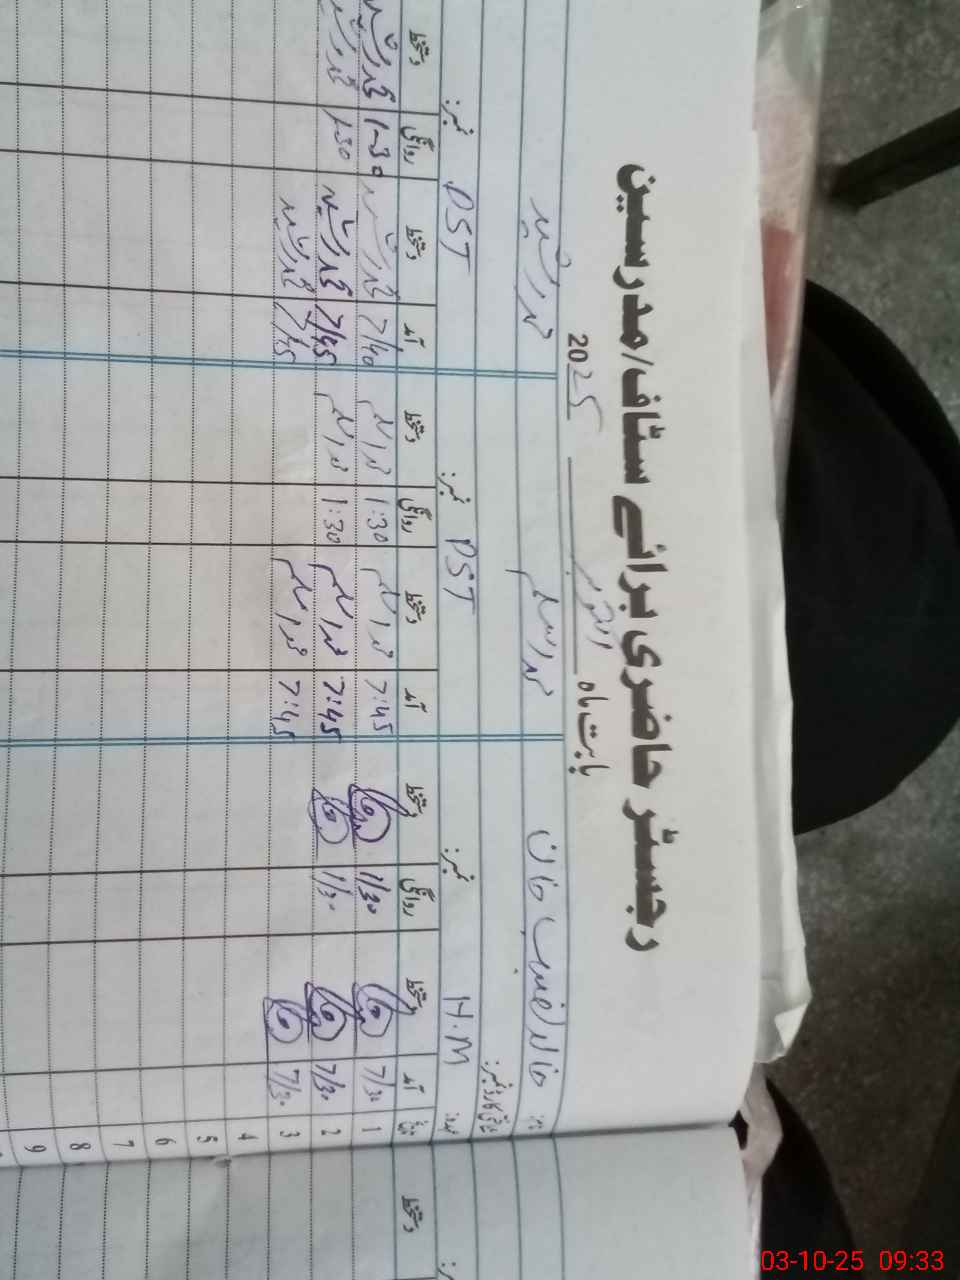 رجسٹر حاضری برائے سٹاف/مدرسین
بابت ماہ اکتوبر 2025
نام: خالد نصیب خان محمد اسلم محمد رشید
شناختی کارڈ نمبر:
عہدہ: H.M نمبر: PST نمبر: PST نمبر:
تاریخ آمد دستخط روانگی دستخط آمد دستخط روانگی دستخط آمد دستخط روانگی دستخط
1 7/30 1/30 7:45 محمد اسلم 1:30 محمد اسلم 7/40 محمد رشید 1-30 محمد رشید
2 7/30 1/30 7:45 محمد اسلم 1:30 محمد اسلم 7/45 محمد رشید 1-30 محمد رشید
3 7/30 7:45 محمد اسلم 7/45 محمد رشید
4
5
6
7
8
9
دستخط
نمبر:
03-10-25 09:33